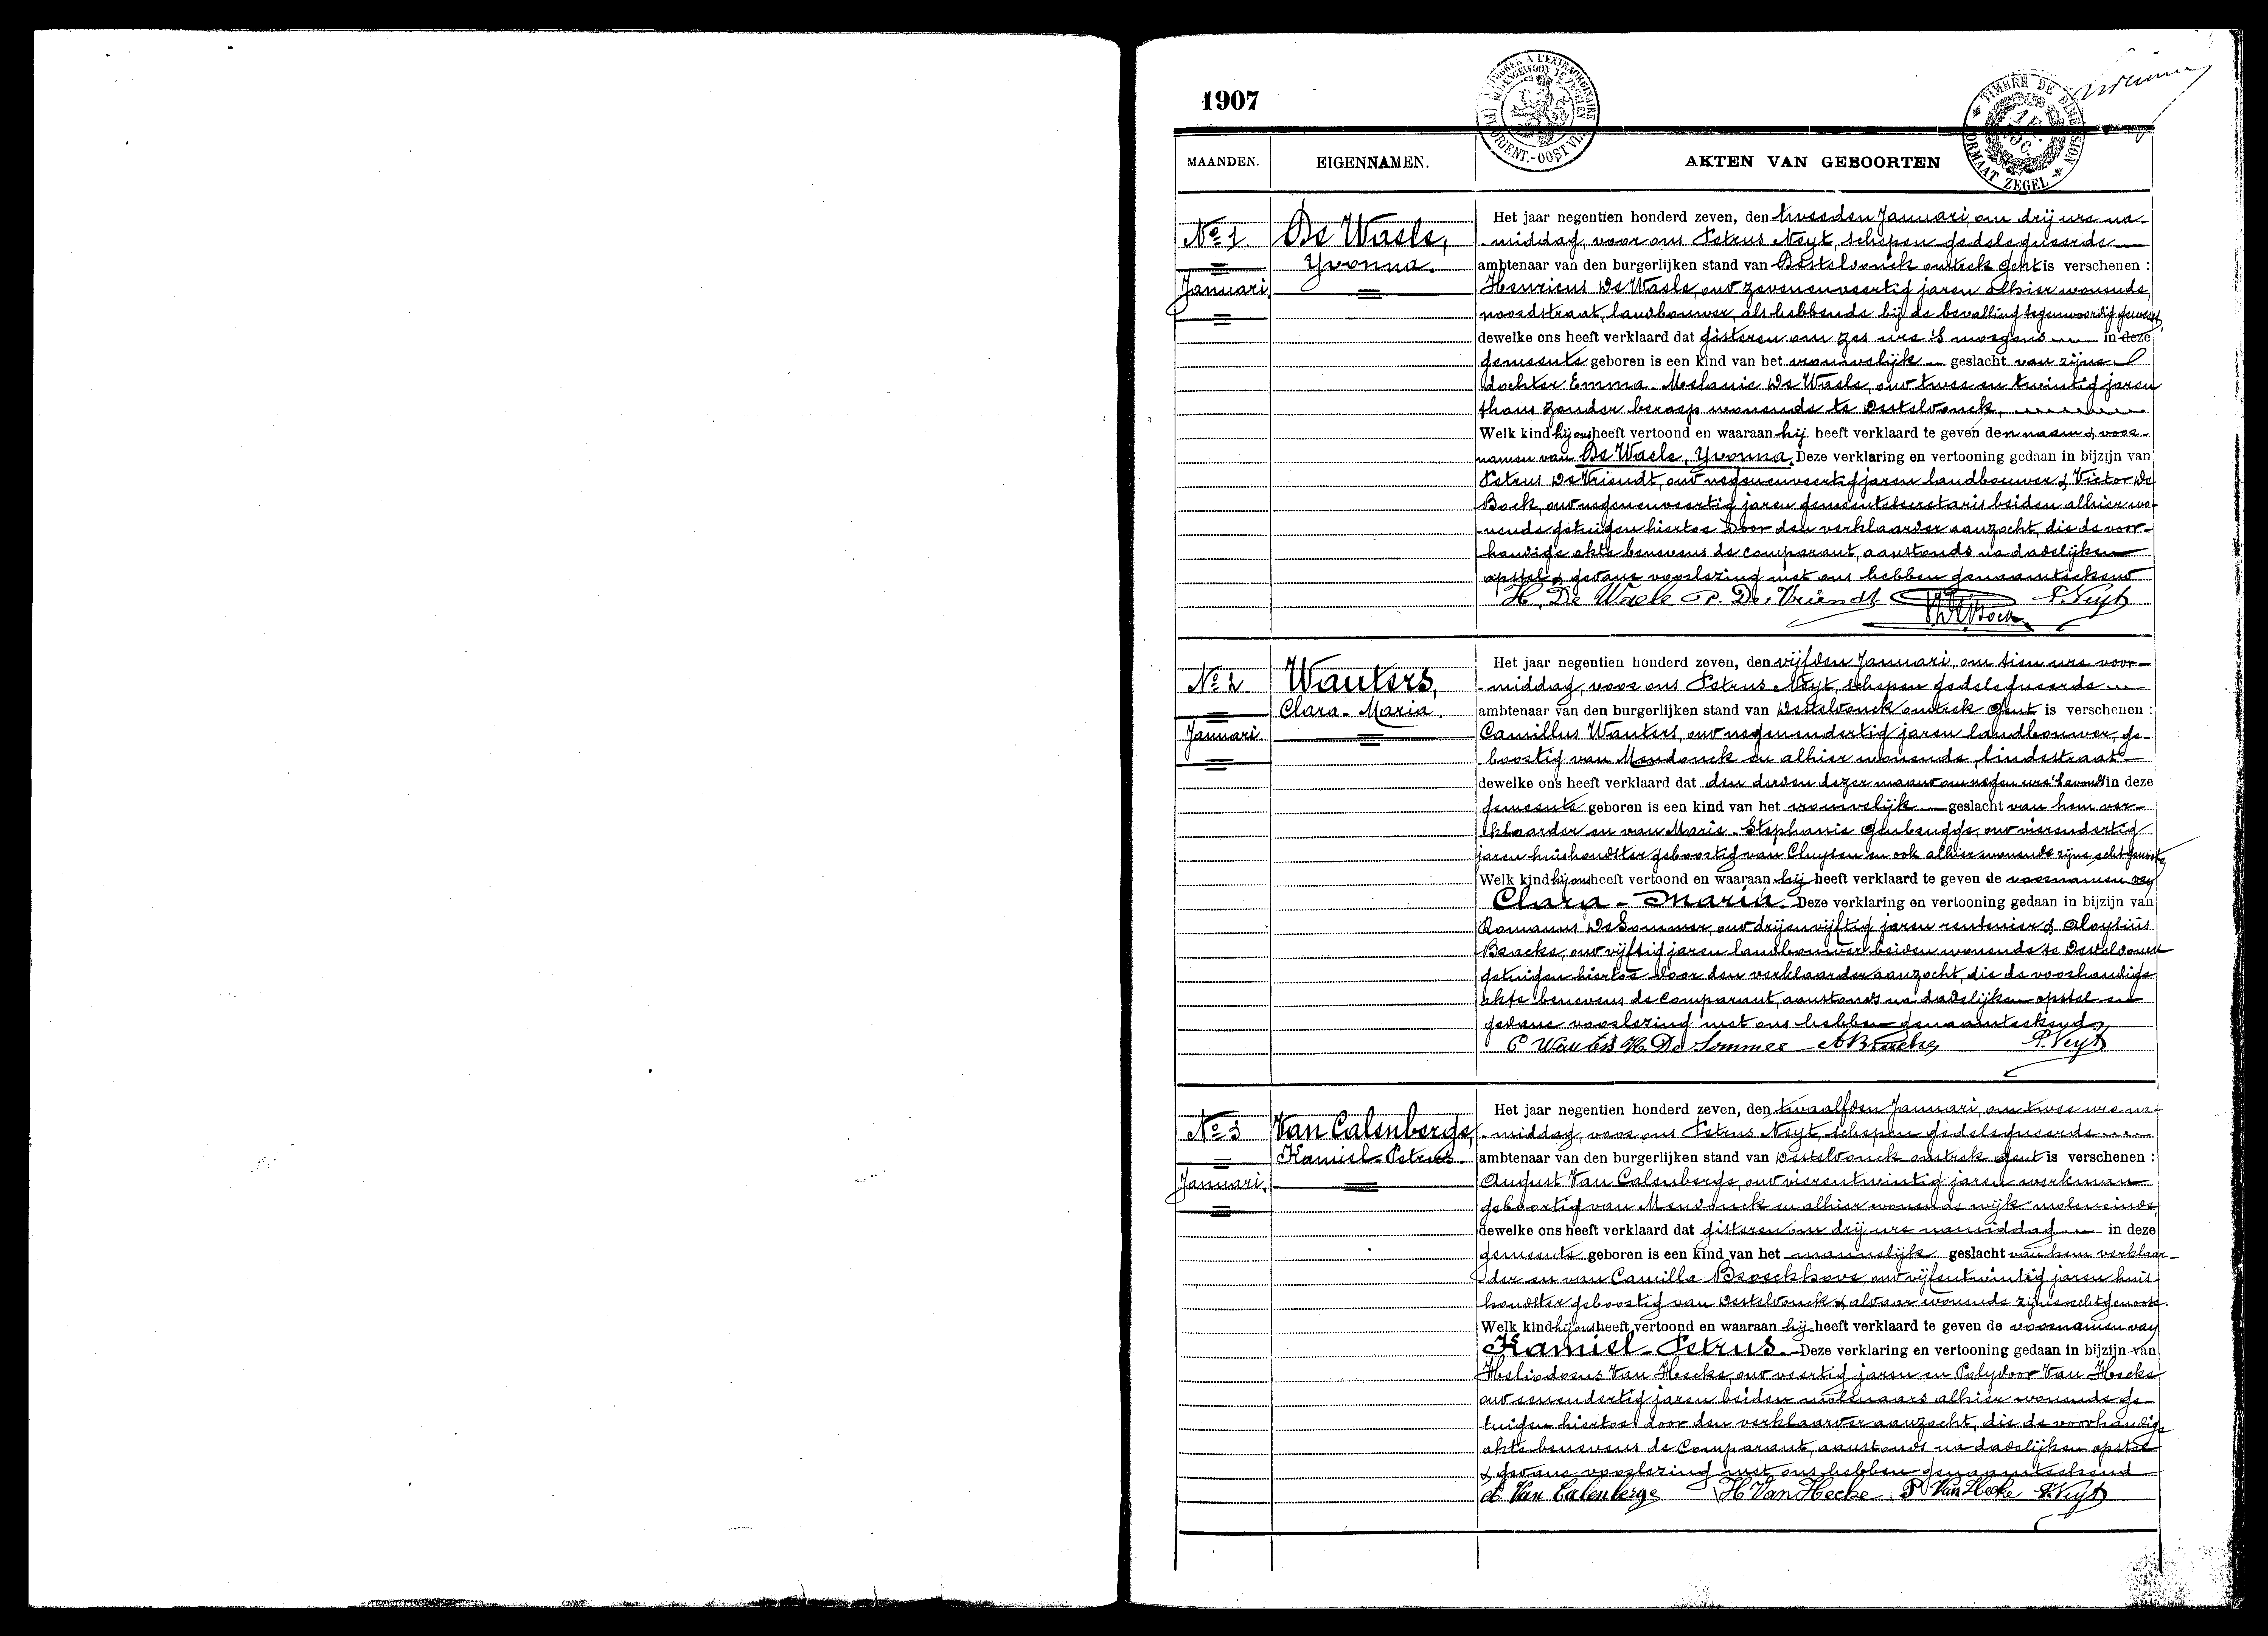 1907
MAANDEN. EIGENNAMEN. AKTEN VAN GEBOORTEN
TIMBRE DE DIMENSION
FORMAAT ZEGEL
No 1
Januari
De Waele,
Yvonna.
Het jaar negentien honderd zeven, den tweeden Januari, om drij ure na-
middag, voor ons Petrus Neyt, schepen gedelegueerde
ambtenaar van den burgerlijken stand van Desteldonck omtrek Gent is verschenen :
Henricus De Waele, oud zevenenveertig jaren alhier wonende,
noordstraat, landbouwer, als hebbende bij de bevalling tegenwoordig geweest,
dewelke ons heeft verklaard dat gisteren om zes ure 's morgens in deze
gemeente geboren is een kind van het vrouwelijk geslacht van zijne
dochter Emma-Melanie De Waele, oud twee en twintig jaren
thans zonder beroep wonende te Desteldonck,
Welk kind hij ons heeft vertoond en waaraan hij heeft verklaard te geven den naam & voor-
namen van De Waele, Yvonna. Deze verklaring en vertooning gedaan in bijzijn van
Petrus De Vriendt, oud negenenveertig jaren landbouwer & Victor De
Bock, oud negenenveertig jaren gemeentesecretaris beiden alhier wo-
nende getuigen hiertoe door den verklaarder aanzocht, die de voor-
handige akte benevens de comparant, aanstonds na dadelijken
opstel & gedane voorlezing met ons hebben genaamteekend
H. De Waele P. De Vriendt P. Neyt
No 2
Januari.
Wauters,
Clara-Maria.
Het jaar negentien honderd zeven, den vijfden Januari, om tien ure voor-
middag, voor ons Petrus Neyt, schepen gedelegueerde
ambtenaar van den burgerlijken stand van Desteldonck omtrek Gent is verschenen :
Camillus Wauters, oud negenendertig jaren landbouwer, ge-
boortig van Mendonck en alhier wonende, lindestraat
dewelke ons heeft verklaard dat den derden dezer maand om negen ure 's avonds in deze
gemeente geboren is een kind van het vrouwelijk geslacht van hem ver-
klaarder en van Marie-Stephanie Genbrugge, oud vierendertig
jaren huishoudster geboortig van Cluysen en ook alhier wonende zijne echtgenoote
Welk kind hij ons heeft vertoond en waaraan hij heeft verklaard te geven de voornamen van
Clara-Maria. Deze verklaring en vertooning gedaan in bijzijn van
Romanus De Sommer, oud drijenvijftig jaren rentenier & Aloysius
Braeke, oud vijftig jaren landbouwer beiden wonende te Desteldonck
getuigen hiertoe door den verklaarder aanzocht, die de voorhandige
akte benevens de comparant, aanstonds na dadelijken opstel en
gedane voorlezing met ons hebben genaamteekend,
C Wauters De Sommer A Braeke P. Neyt
No 3
Januari.
Van Calenberge,
Kamiel-Petrus.
Het jaar negentien honderd zeven, den twaalfden Januari, om twee ure na-
middag, voor ons Petrus Neyt, schepen gedelegueerde
ambtenaar van den burgerlijken stand van Desteldonck omtrek Gent is verschenen :
August Van Calenberge, oud vierentwintig jaren werkman
geboortig van Mendonck en alhier wonende wijk moleneinde,
dewelke ons heeft verklaard dat gisteren om drij ure namiddag in deze
gemeente geboren is een kind van het mannelijk geslacht van hem verklaar-
der en van Camilla Broeckhove, oud vijfentwintig jaren huis-
houdster geboortig van Desteldonck & aldaar wonende zijne echtgenoote.
Welk kind hij ons heeft vertoond en waaraan hij heeft verklaard te geven de voornamen van
Kamiel-Petrus. Deze verklaring en vertooning gedaan in bijzijn van
Heliodorus Van Hecke, oud veertig jaren en Polydoor Van Hecke
oud eenendertig jaren beiden molenaars alhier wonende ge-
tuigen hiertoe door den verklaarder aanzocht, die de voorhandige
akte benevens de Comparant, aanstonds na dadelijken opstel
& gedane voorlezing met ons hebben genaamteekend
A. Van Calenberge H Van Hecke P Van Hecke P. Neyt